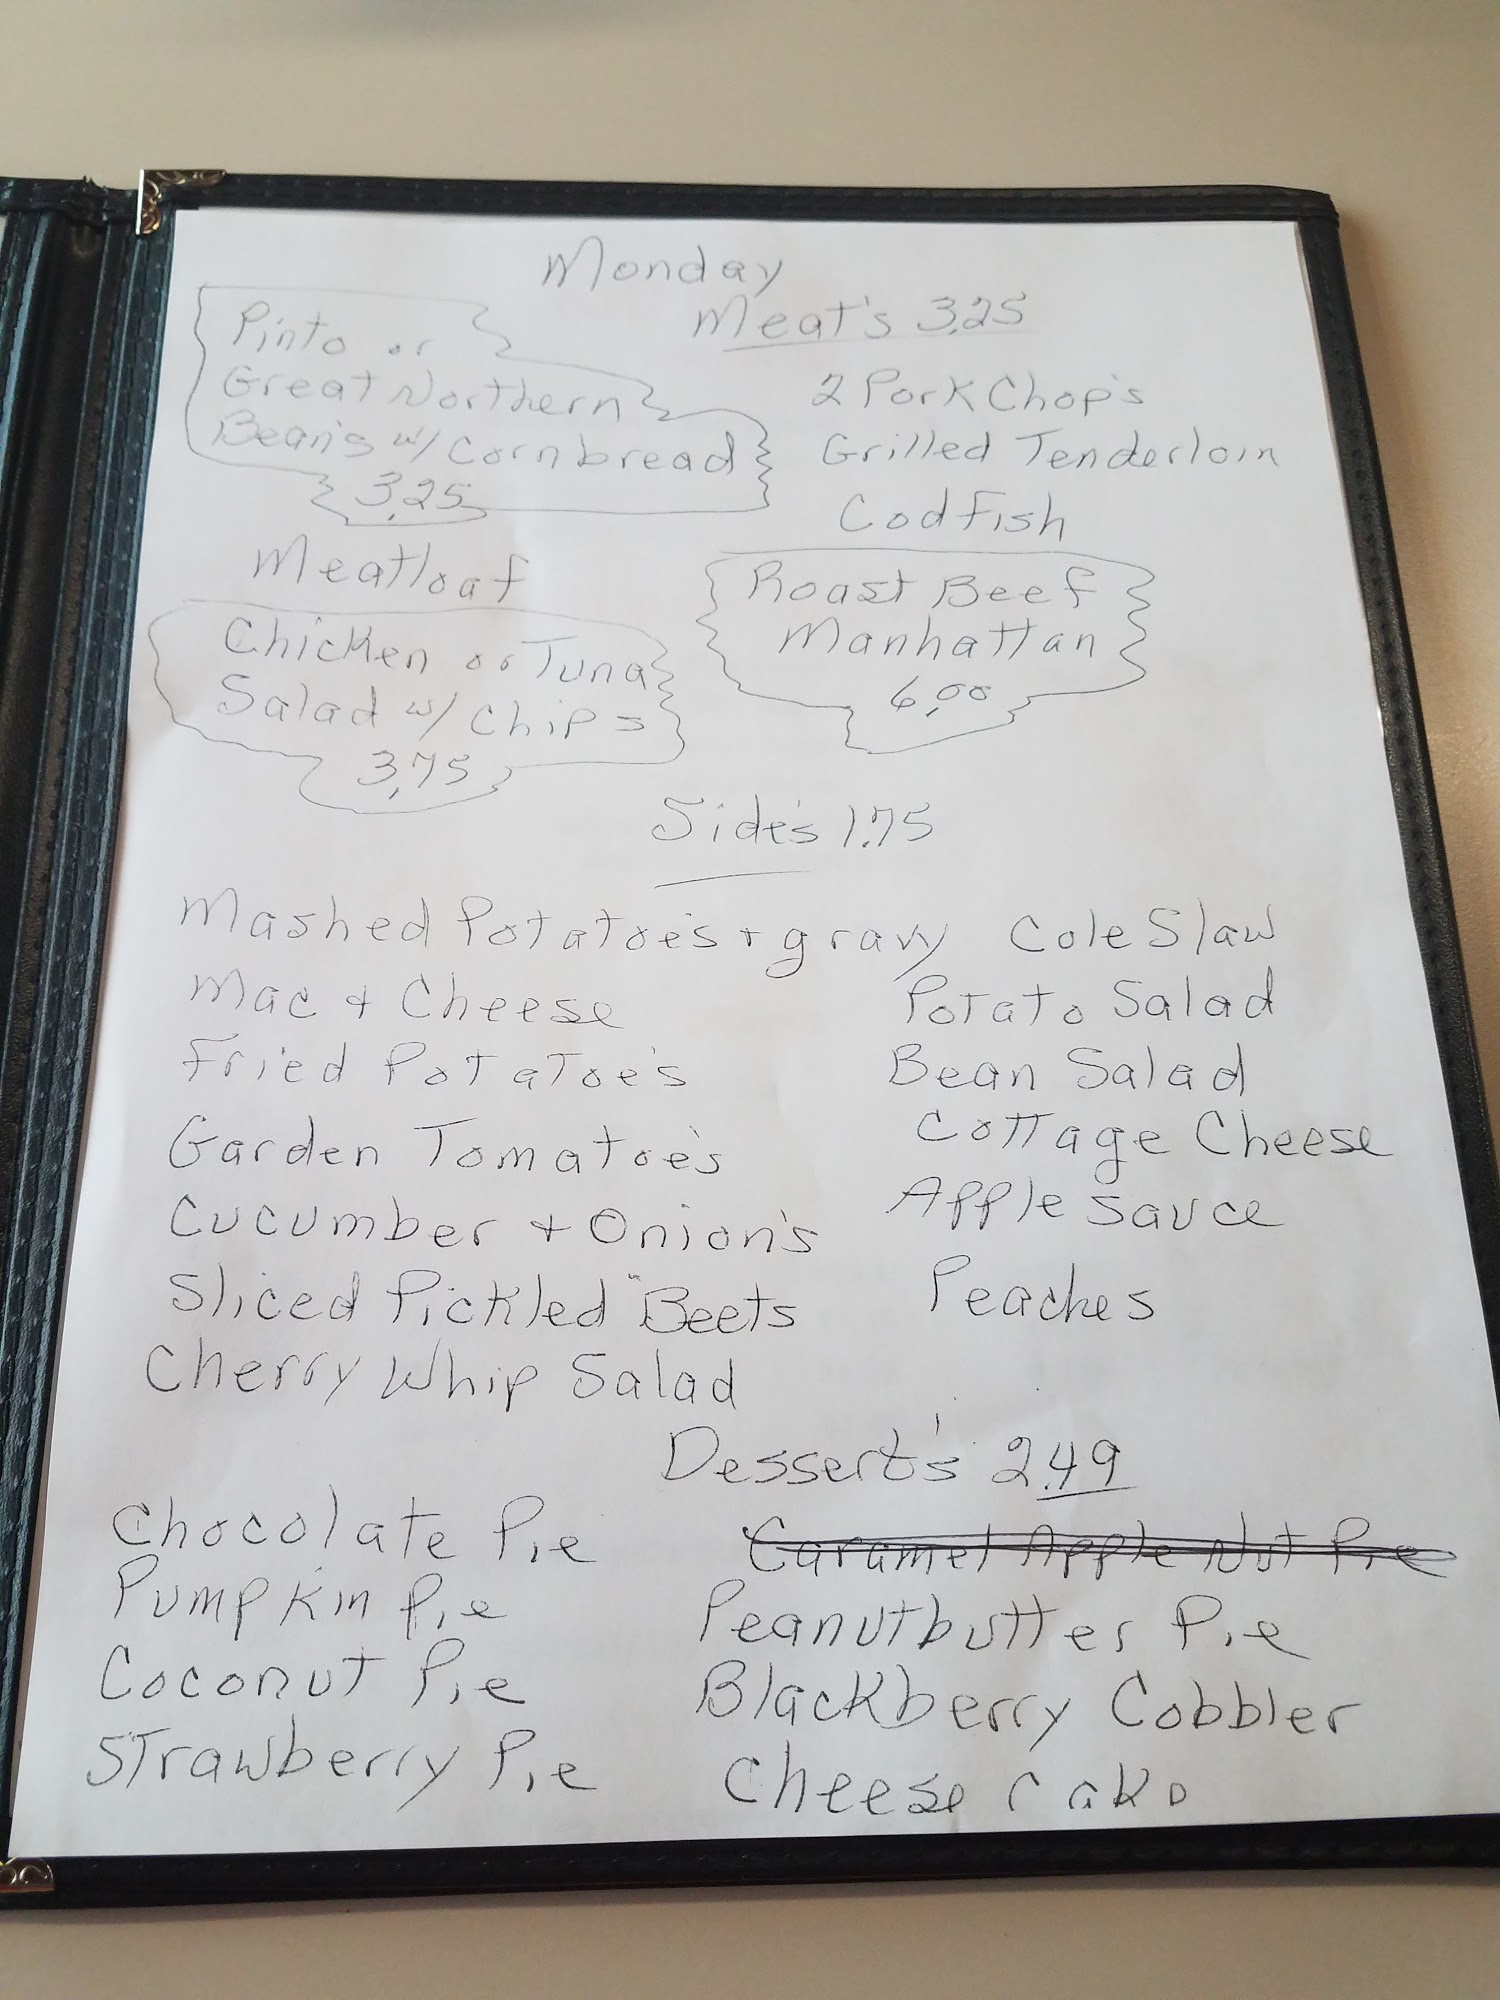 Monday
Meat's 3.25
Pinto or
Great Northern
Bean's w/ Cornbread
3.25
2 Pork Chop's
Grilled Tenderloin
Cod Fish
Meatloaf
Roast Beef
Manhattan
6.00
Chicken or Tuna
Salad w/ Chips
3.75
Side's 1.75
Mashed Potatoe's + gravy
Mac + Cheese
Fried Potatoe's
Garden Tomatoe's
Cucumber + Onion's
Sliced Pickled "Beets
Cherry Whip Salad
Cole Slaw
Potato Salad
Bean Salad
Cottage Cheese
Apple Sauce
Peaches
Dessert's 2.49
Chocolate Pie
Pumpkin Pie
Coconut Pie
Strawberry Pie
Caramel Apple Nut Pie
Peanutbutter Pie
Blackberry Cobbler
Cheese cake